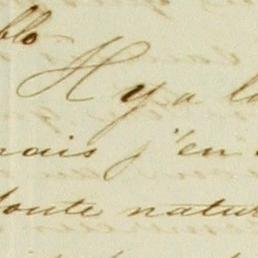 blo
Il y a la
mais j'en
toute natur